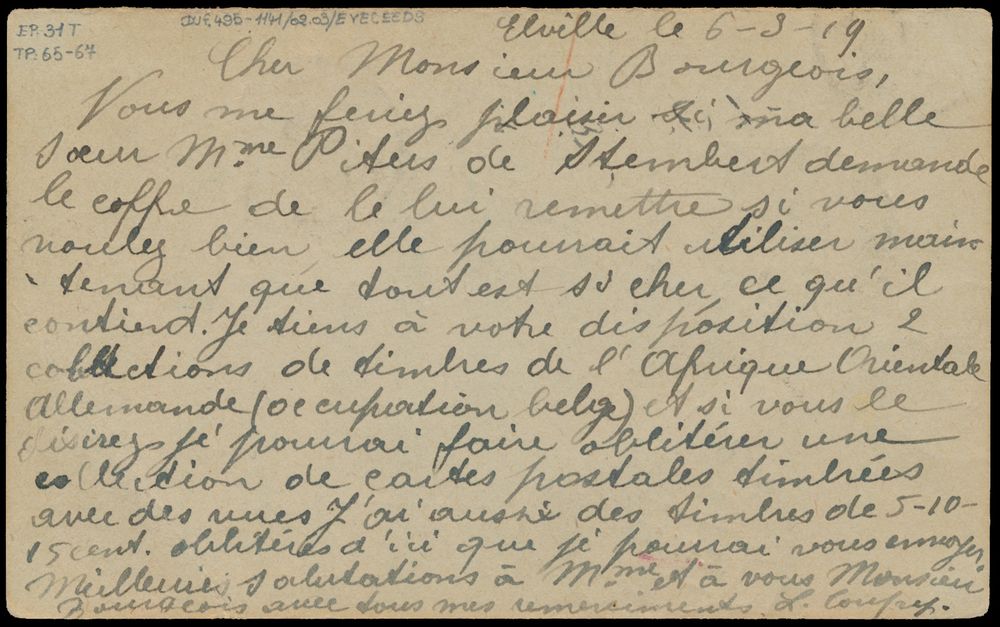 EP. 31 T
TP. 65-67
Elville le 6-3-19
Cher Monsieur Bourgeois,
Vous me feriez plaisir si ma belle
sœur Mme Piters de Stembert demande
le coffre de le lui remettre si vous
voulez bien, elle pourrait utiliser main
tenant que tout est si cher, ce qu'il
contient. Je tiens à votre disposition 2
collections de timbres de l'Afrique Orientale
Allemande (occupation belge) et si vous le
désirez je pourrai faire oblitérer une
collection de cartes postales timbrées
avec des vues J'ai aussi des timbres de 5-10-
15 cent. oblitérés d'ici que je pourrai vous envoyer
Meilleures salutations à Mme et à vous Monsieur
Bourgeois avec tous mes remerciments L.